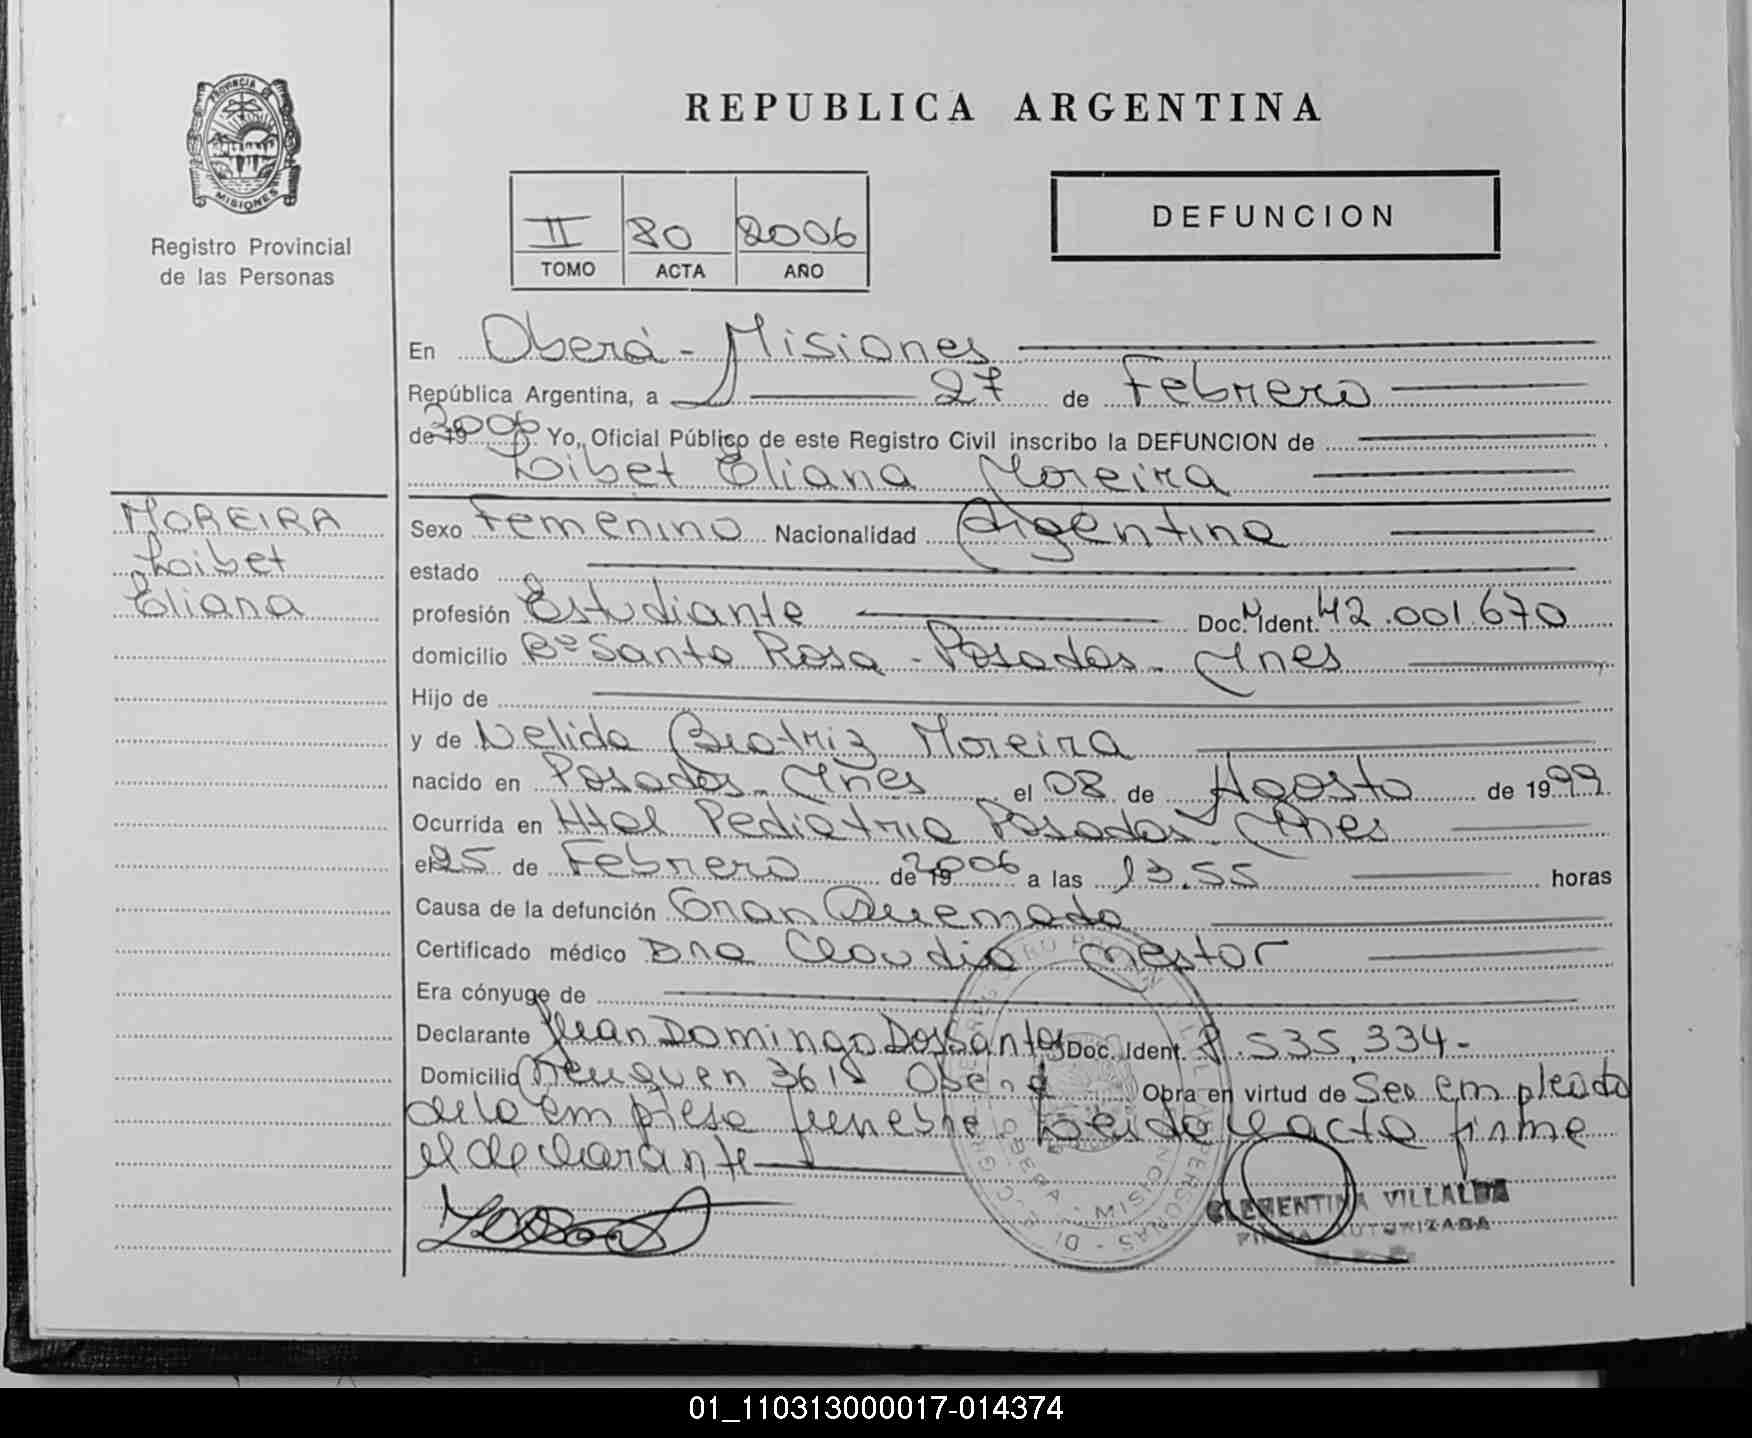 PROVINCIA DE
MISIONES
Registro Provincial
de las Personas
REPUBLICA ARGENTINA
II 80 2006
TOMO ACTA AÑO
DEFUNCION
En Oberá - Misiones
República Argentina, a 27 de Febrero
de 19 2006 Yo, Oficial Público de este Registro Civil inscribo la DEFUNCION de
Loibet Eliana Moreira
MOREIRA
Loibet
Eliana
Sexo Femenino Nacionalidad Argentina
estado
profesión Estudiante Doc. N Ident. 42.001.670
domicilio Bº Santa Rosa - Posadas - Mnes
Hijo de
y de Nelida Beatriz Moreira
nacido en Posadas - Mnes el 08 de Agosto de 1999
Ocurrida en Htal Pediatrio Posadas Mnes
el 25 de Febrero de 19 2006 a las 13.55 horas
Causa de la defunción Gran Quemado
Certificado médico Dra Claudia Nestor
Era cónyuge de
Declarante Juan Domingo Dos Santos Doc. Ident. 8.535.334-
Domicilio Neuquen 3618 Oberá Obra en virtud de Ser empleado
de la empresa funebre Leida el acta firma
el declarante
CLEMENTINA VILLALBA
FIRMA AUTORIZADA
OBERA - MISIONES
01_110313000017-014374